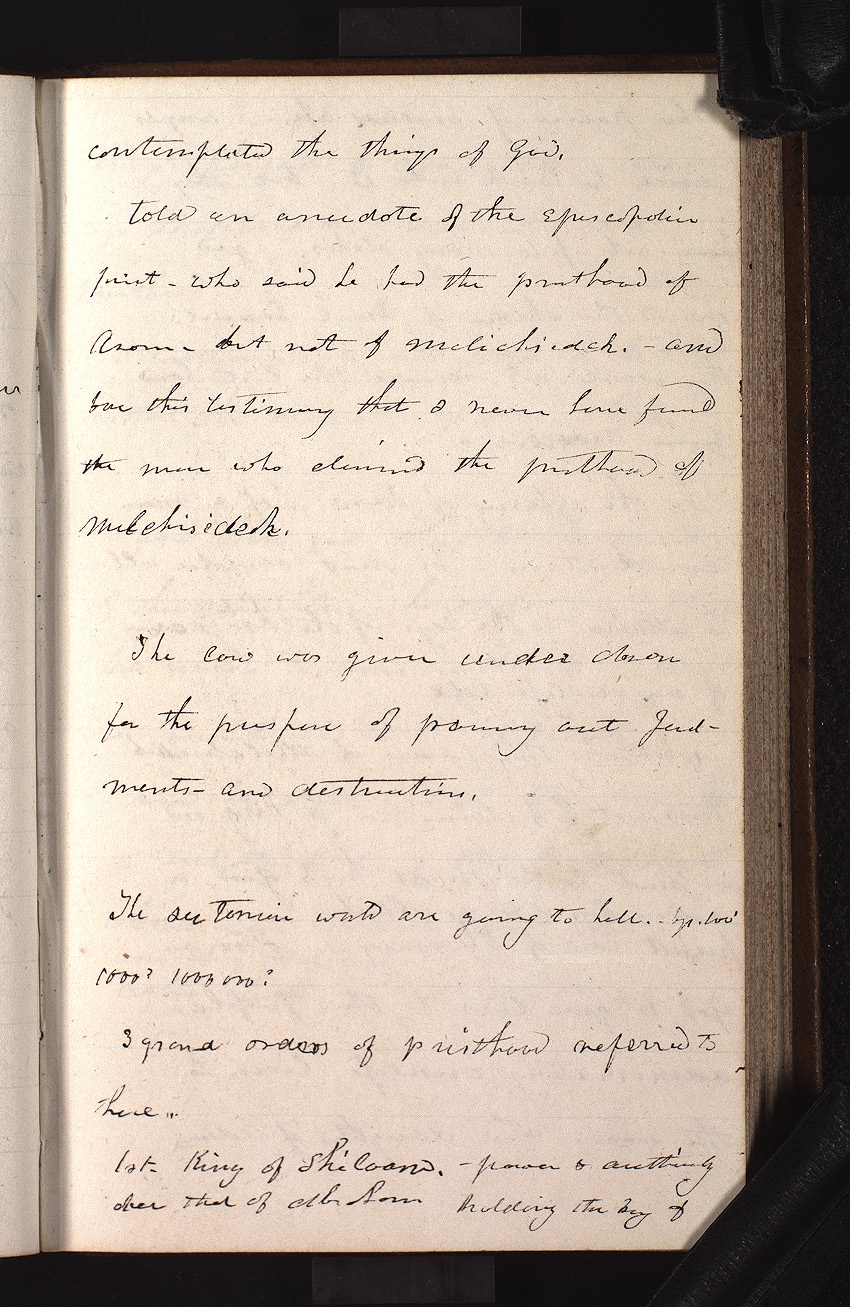 contemplated the things of God.
told an anecdote of the Episcopolian
priest - who said he had the priesthood of
Aaron - but not of melichisedek. - and
bore this testimony that I never have found
the man who claimed the priesthood of
Melchisedek.
The law was given under Aaron
for the purpose of pouring out Jud-
ments - and destruction.
The sectarian world are going to hell. by 100s
1000s 1000000s
3 grand orders of priesthood referred to
here..
1st King of Shiloam. - power & authority
over that of Abraham holding the key of